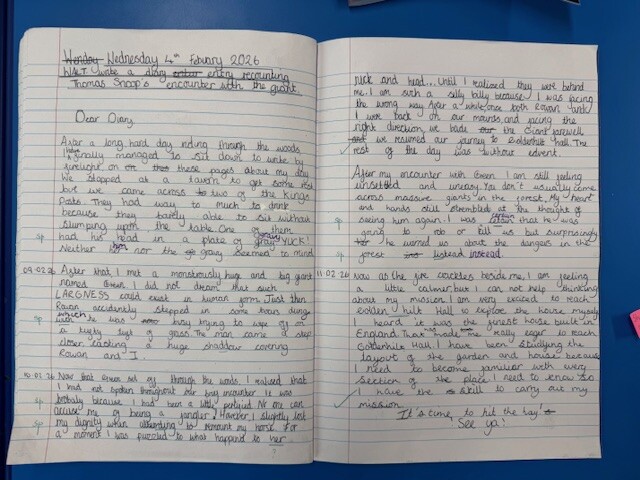 Wednesday 4th Febuary 2026
WALT write a diary entry recounting
Thomas Snoop's encounter with the giant.
Dear Diary
After a long hard day riding through the woods
I finally managed to sit down to write by
firelight on these pages about my day
We stopped at a tavern to get some rest
but we came across two of the kings
Pals. They had way to much to drink
because they barely able to sit without
slumping upon the table. One of them
had his head in a plate of gravy YUCK!
Neither him nor the gravy seemed to mind
09.02.26 After that I met a monstrously huge and big giant
named Green I did not dream that such
LARGNESS could exist in human form. Just then
Rowan accidently stepped in some horse dung
sp which he was busy trying to wipe off on
a tufty tuft of grass The man came a step
closer casting a huge shaddow covering
Rowan and I.
10.02.26 Now that Green set off through the woods I realised that
I had not spoken throughout our big encounter it was
sp probaly because I had been a little petrified No one can
accuse me of being a However I slightly lost
sp my dignity when attempting to remount my horse. For
a moment I was puzzled to what happend to her
neck and head... Until I realised they were behind
me. I am such a silly billy because I was facing
the wrong way After a while once both Rowan and
I were back on our mounts and facing the
right direction, we bade the Giant farewell
and we resumed our journey to Goldenhilt Hall. The
rest of the day was without event.
After my encounter with Green I am still feeling
unsettled and uneasy. You don't usually come
across massive giants in the forest. My heart
and hands still trembled at the thought of
sp seeing him again. I was certain that he was
going to rob or kill us but surprisingly
he warned us about the dangers in the
sp forest instead
11.02.26 Now as the fire crackles beside me, I am feeling
a little calmer but I can not help thinking
about my mission I am very excited to reach
Golden Hilt Hall to explore the house myself
I heard it was the finest house built in
England. That made me really eager to reach
Goldenhilt Hall I have been studying the
layout of the garden and house because
I need to become familiar with every
section of the place. I need to know so
I have the skill to carry out my
mission.
It's time to hit the hay's
See ya!